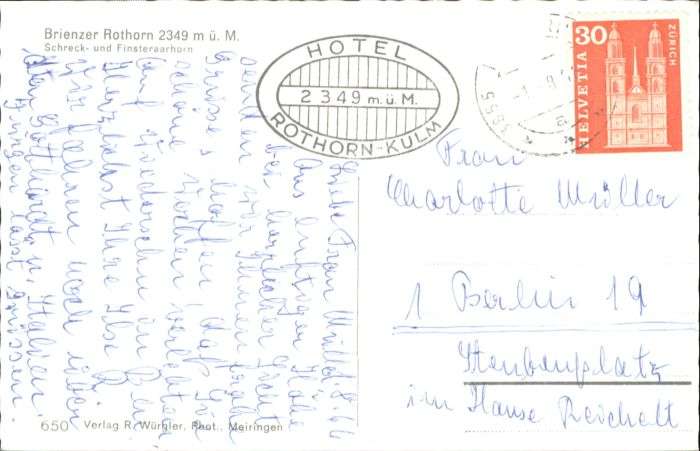 Brienzer Rothorn 2349 m ü. M.
Schreck- und Finsteraarhorn
HOTEL
2349 m.ü.M.
ROTHORN-KULM
30
HELVETIA
ZÜRICH
Frau
Charlotte Müller
1 Berlin 19
Steubenplatz
im Hause Reichelt
Liebe Frau Müller
Aus luftiger Höhe
bei herrlicher
senden wir Ihnen
Grüsse, hoffen daß Sie
schöne Wochen verlebten
Auf Wiedersehn in Berlin
Herzlichst Ihre Ilse
Wir fahren noch über
den Gotthardt n. Italien.
grüssen.
650 Verlag R. Würgler, Phot., Meiringen